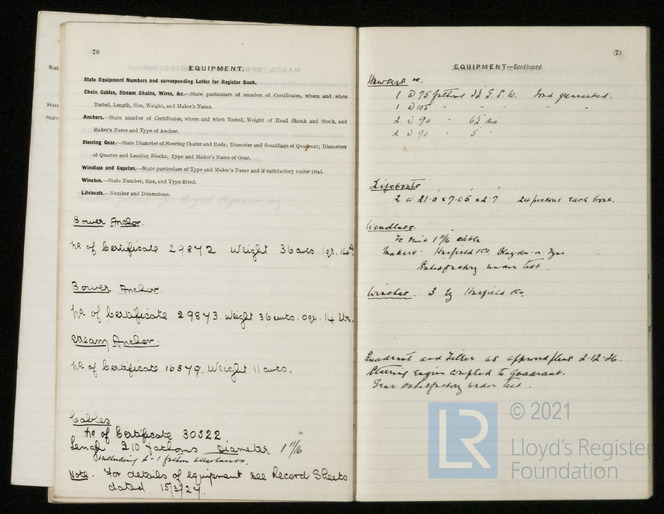 70
EQUIPMENT.
State Equipment Numbers and corresponding Letter for Register Book.
Chain Cables, Stream Chains, Wires, &c.—State particulars of number of Certificates, where and when
Tested, Length, Size, Weight, and Maker's Name.
Anchors.—State number of Certificates, where and when Tested, Weight of Head Shank and Stock, and
Maker's Name and Type of Anchor.
Steering Gear.—State Diameter of Steering Chains and Rods; Diameter and Scantlings of Quadrant; Diameters
of Quarter and Leading Blocks; Type and Maker's Name of Gear.
Windlass and Capstan.—State particulars of Type and Maker's Name and if satisfactory under trial.
Winches.—State Number, Size, and Type fitted.
Lifeboats.—Number and Dimensions.
Bower Anchor.
No of Certificate 29872 Weight 36cwts. 1qr. 14lbs
Bower Anchor.
No of Certificate 29873. Weight 36cwts. 0qr. 14 lbs.
Stream Anchor.
No of Certificate 16879. Weight 11cwts.
Cables
No of Certificate 30522
Length 210 fathoms Diameter 1 11/16"
including
Note. For details of equipment see Record Sheets
dated 15/2/27.
71
EQUIPMENT—Continued.
Hawsers &c.
1 @ 75 fathoms guaranteed.
1 @ 105 " "
2 @ 90 "
2 @ 90 " 5 "
Lifeboats
2 @ 21.0 x 7.05 x 2.7 24 persons each boat.
Windlass.
To suit 1 11/16 cable
Makers Harfield & Co. Blaydon-on-Tyne
Satisfactory under test.
Winches. 3 by Harfield & Co.
Quadrant and Tiller as approved plan 2-12-26.
Steering Engine coupled to quadrant.
Gear satisfactory under test.
LR
© 2021
Lloyd's Register
Foundation